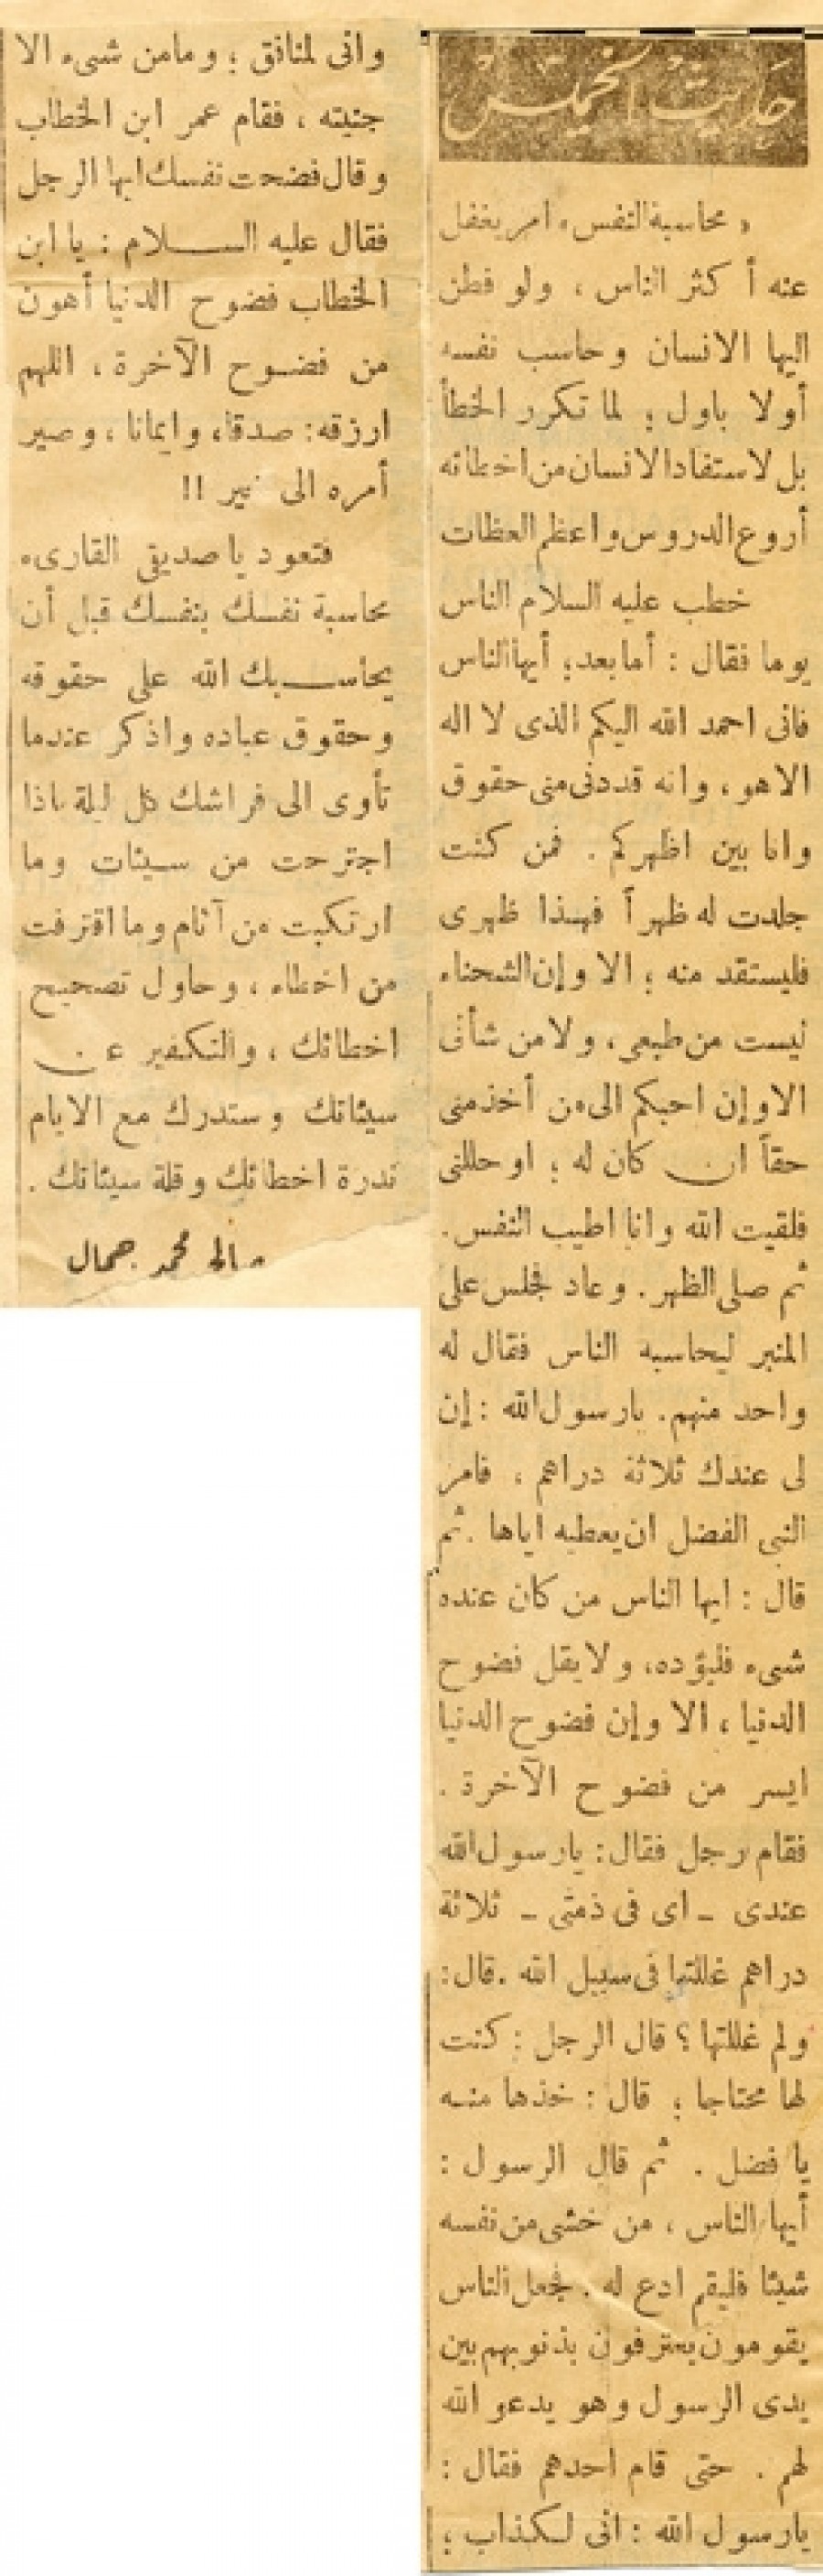 حديث الخميس
« محاسبة النفس » امر يغفل
عنه أكثر الناس ، ولو فطن
اليها الانسان وحاسب نفسه
أولا باول ؛ لما تكرر الخطأ
بل لاستفاد الانسان من اخطائه
أروع الدروس واعظم العظات
خطب عليه السلام الناس
يوما فقال : أما بعد ؛ أيها الناس
فانى احمد الله اليكم الذى لا اله
الا هو ، وانه قد دنى منى حقوق
وانا بين اظهركم . فمن كنت
جلدت له ظهراً فهذا ظهرى
فليستقد منه ؛ الا وإن الشحناء
ليست من طبعى ، ولا من شأنى
الا وإن احبكم الى من أخذ منى
حقاً ان كان له ؛ او حللنى
فلقيت الله وانا اطيب النفس .
ثم صلى الظهر . وعاد فجلس على
المنبر ليحاسبه الناس فقال له
واحد منهم . يارسول الله : إن
لى عندك ثلاثة دراهم ، فامر
النبى الفضل ان يعطيه اياها . ثم
قال : ايها الناس من كان عنده
شىء فليؤده ، ولا يقل فضوح
الدنيا ، الا وإن فضوح الدنيا
ايسر من فضوح الآخرة .
فقام رجل فقال : يارسول الله
عندى ـ اى فى ذمتى ـ ثلاثة
دراهم غللتها فى سبيل الله . قال :
ولم غللتها ؟ قال الرجل : كنت
لها محتاجا ؛ قال : خذها منه
يا فضل . ثم قال الرسول :
أيها الناس ، من خشى من نفسه
شيئا فليقم ادع له . فجعل الناس
يقومون يعترفون بذنوبهم بين
يدى الرسول وهو يدعو الله
لهم . حتى قام احدهم فقال :
يارسول الله : انى لكذاب ؛
وانى لمنافق ؛ وما من شىء الا
جنيته ، فقام عمر ابن الخطاب
وقال فضحت نفسك ايها الرجل
فقال عليه السلام : يا ابن
الخطاب فضوح الدنيا أهون
من فضوح الآخرة ، اللهم
ارزقه : صدقا ، وايمانا ، وصير
أمره الى خير !!
فتعود يا صديقى القارىء
محاسبة نفسك بنفسك قبل أن
يحاسبك الله على حقوقه
وحقوق عباده واذكر عندما
تأوى الى فراشك كل ليلة ماذا
اجترحت من سيئات وما
ارتكبت من آثام وما اقترفت
من اخطاء ، وحاول تصحيح
اخطائك ، والتكفير عن
سيئاتك وستدرك مع الايام
ندرة اخطائك وقلة سيئاتك .
صالح محمد جمال